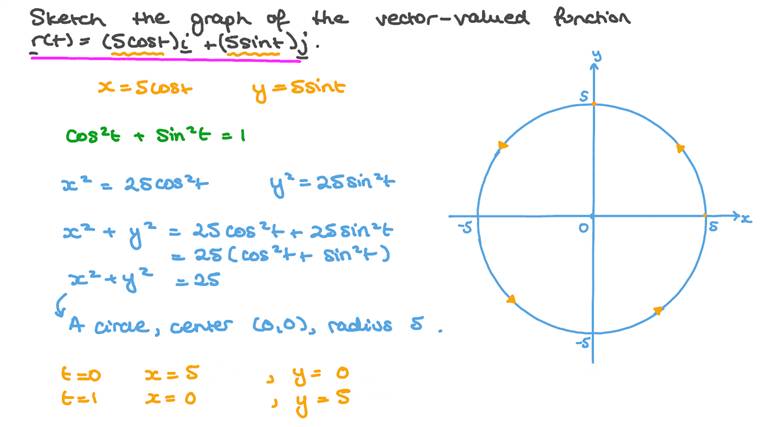 Sketch the graph of the vector-valued function
r(t) = (5cost)i + (5sint)j.
x = 5cost y = 5sint
cos²t + sin²t = 1
x² = 25cos²t y² = 25sin²t
x² + y² = 25cos²t + 25sin²t
= 25(cos²t + sin²t)
x² + y² = 25
A circle, center (0,0), radius 5.
t=0 x=5 , y=0
t=1 x=0 , y=5
y
5
-5 0 5 x
-5